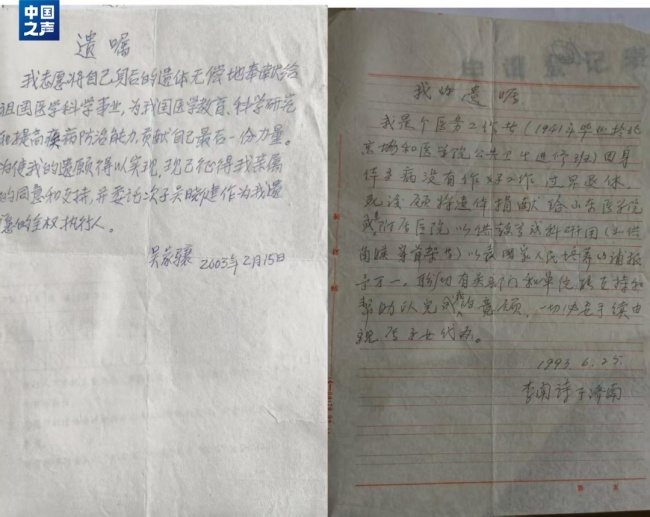 中国之声
遗嘱
我志愿将自己身后的遗体无偿地奉献给
祖国医学科学事业,为我国医学教育、科学研究
和提高疾病防治能力,贡献自己最后一份力量。
为使我的遗愿得以实现,现已征得我亲属
的同意和支持,并委托次子吴晓健作为我遗
愿的全权执行人。
吴家骧 2003年2月15日
我的遗嘱
我是个医务工作者(1941年毕业于北
京协和医学院公共卫生进修班)因身
体多病没有作好工作,过早退休。
死后愿将遗体捐献给山东医学院
或附属医院以供教学或科研用
以表国家人民培养
于万一。盼望有关部门和单位能支持和
帮助以完成我的意愿,一切
1993.6.25.
于济南